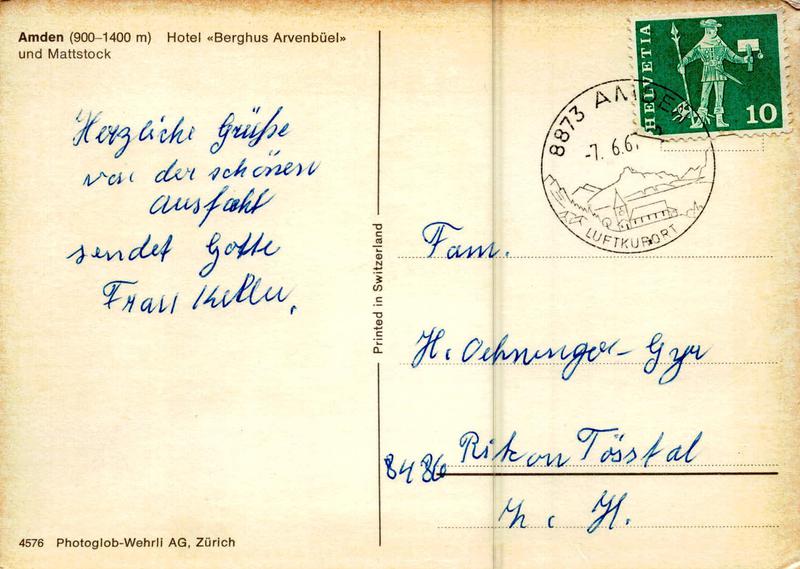 Amden (900–1400 m) Hotel «Berghus Arvenbüel»
und Mattstock
Herzliche Grüße
von der schönen
Ausfaht
sendet Gotte
Frau Keller.
4576 Photoglob-Wehrli AG, Zürich
Printed in Switzerland
HELVETIA
10
8873 AMDEN
-7. 6.6
LUFTKURORT
Fam.
H. Oehninger-Gyr
8486 Rikon Tösstal